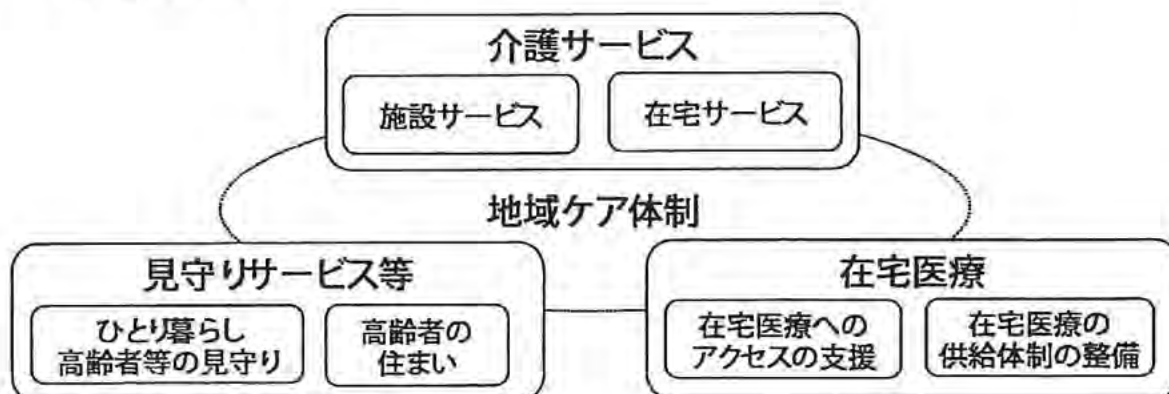 介護サービス
施設サービス
在宅サービス
地域ケア体制
見守りサービス等
ひとり暮らし
高齢者等の見守り
高齢者の
住まい
在宅医療
在宅医療への
アクセスの支援
在宅医療の
供給体制の整備